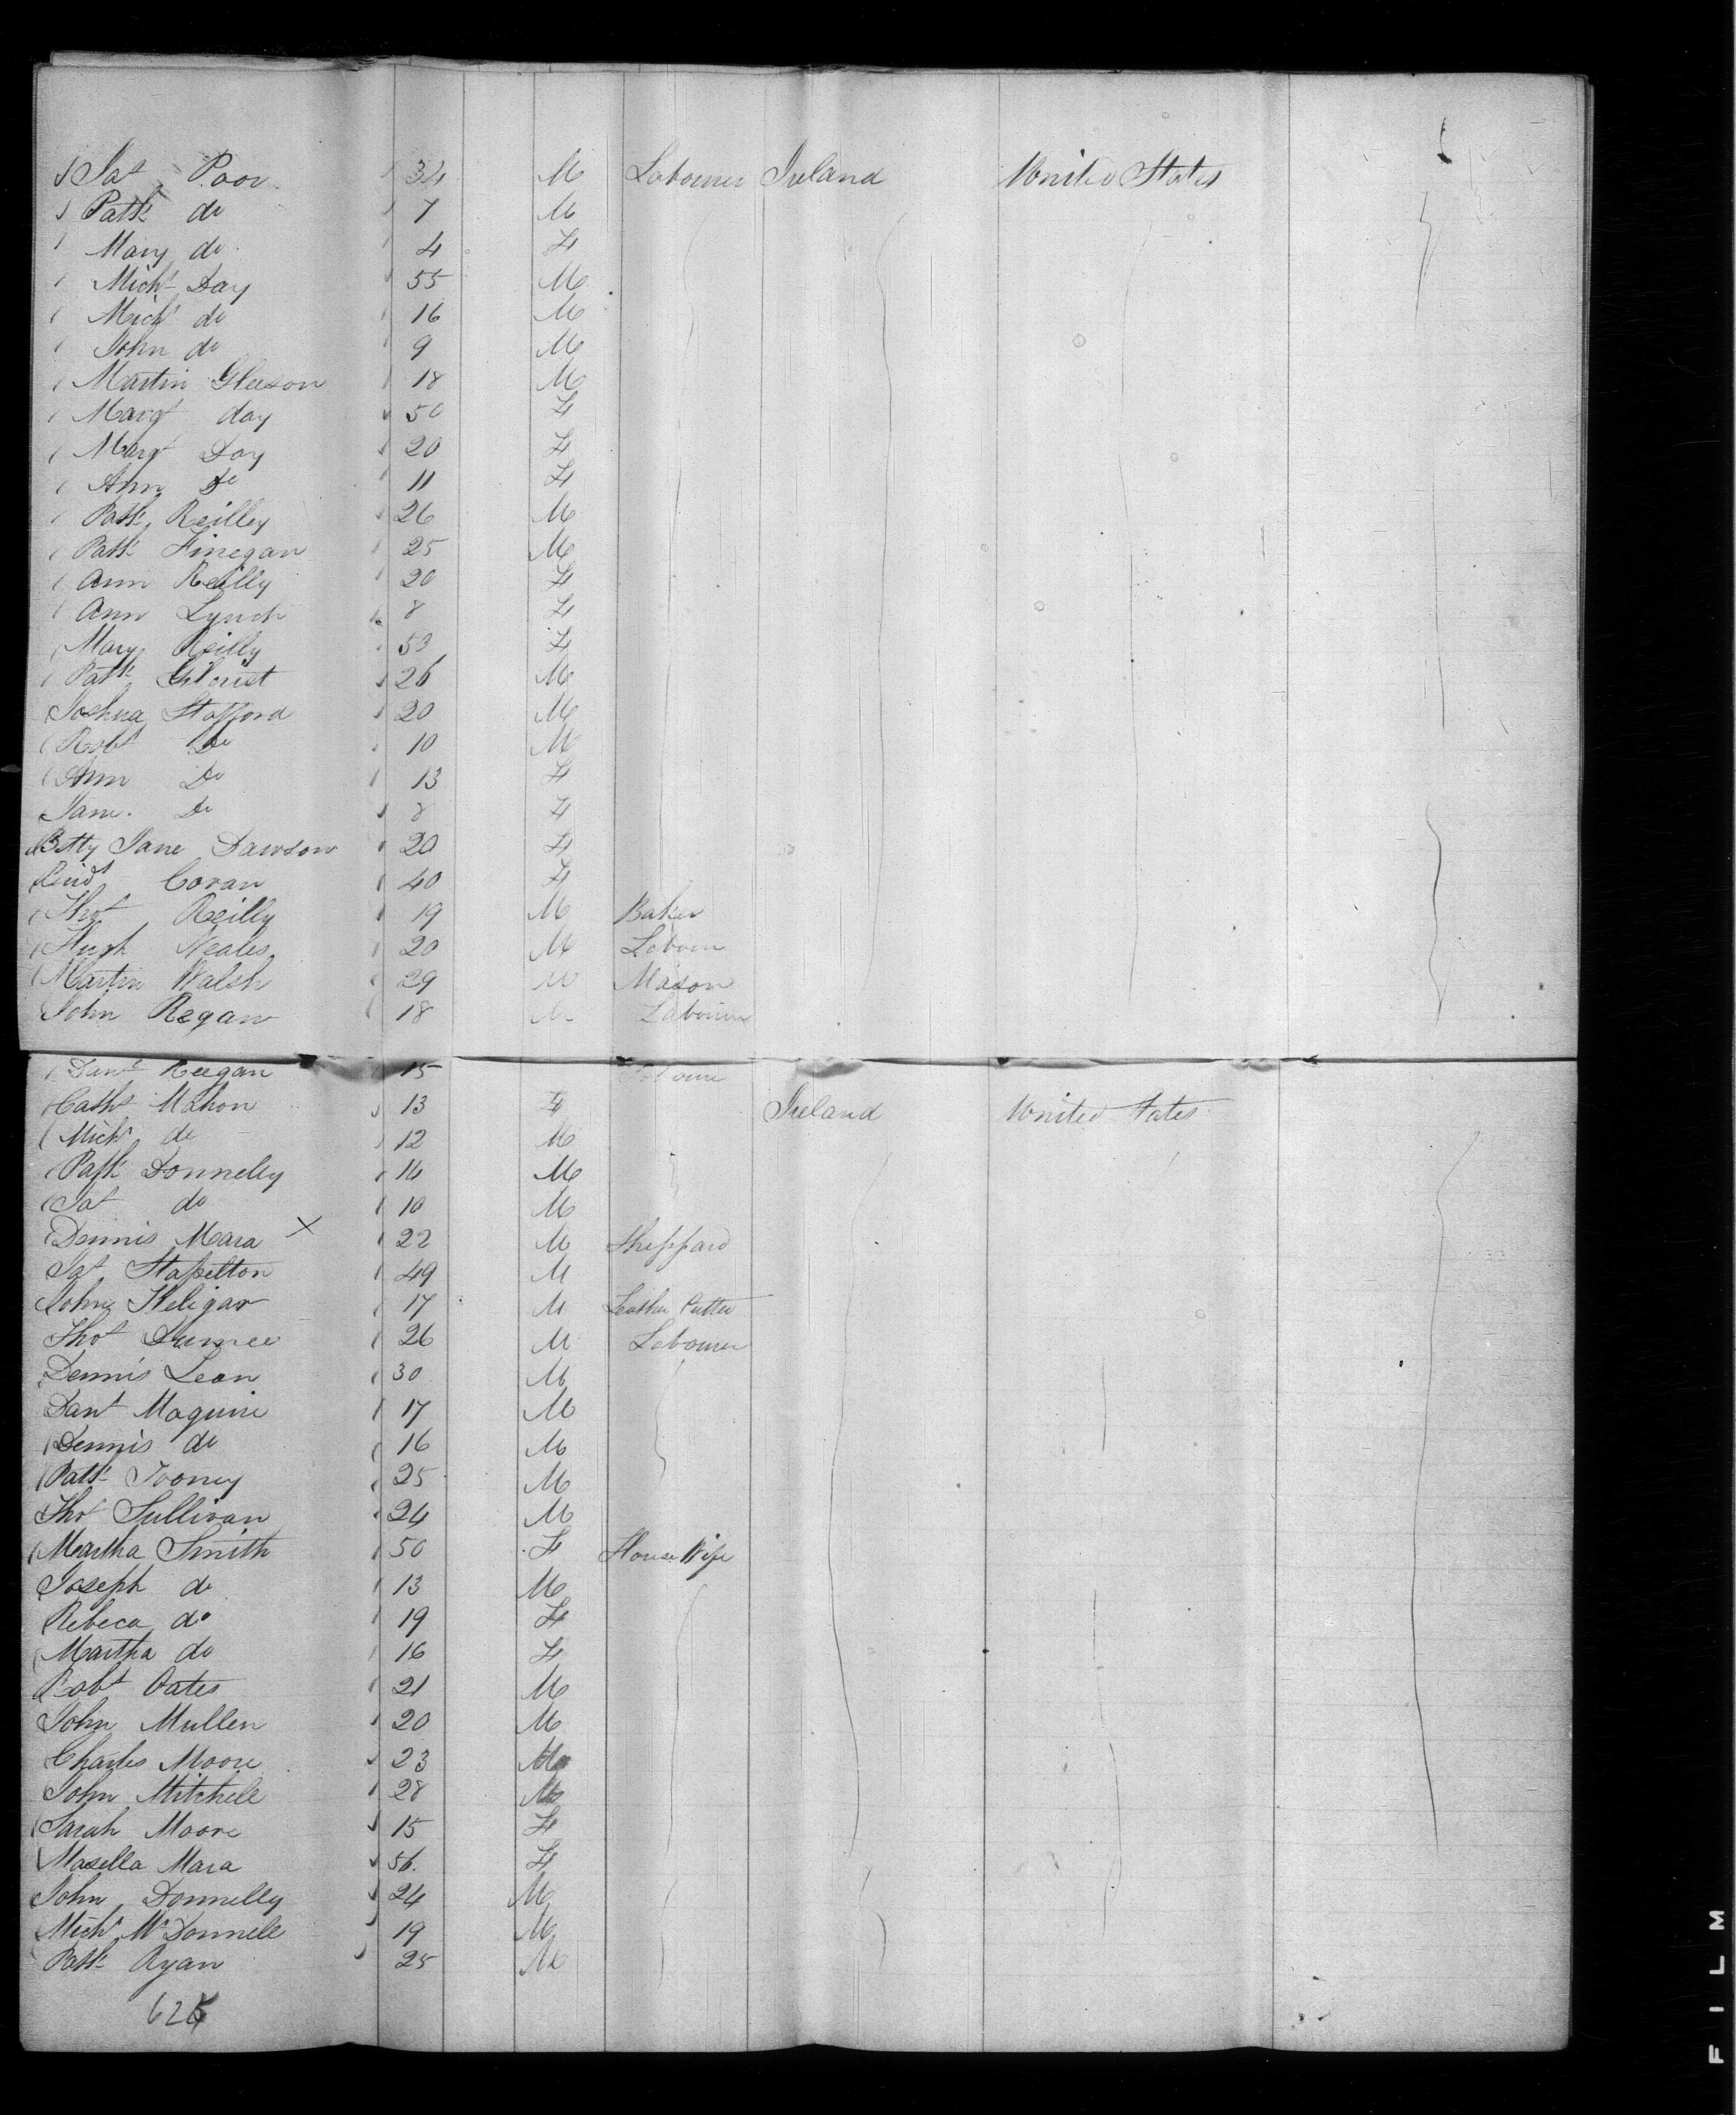 Jas Poor 34 M Labourer Ireland United States
Patk do 7 M
Mary do 4 F
Michl Day 55 M
Michl do 16 M
John do 9 M
Martin Gleeson 18 M
Margt day 50 F
Margt Day 20 F
Ann Do 11 F
Patk Reilley 26 M
Patk Finegan 25 M
Ann Reilly 20 F
Ann Lynch 8 F
Mary Reilly 53 F
Patk Gilcrist 26 M
Joshua Stafford 20 M
Robt Do 10 M
Ann Do 13 F
Jane Do 8 F
Betty Jane Dawson 20 F
Coran 40 F
Thos Reilly 19 M Baker
Hugh Neales 20 M Labour
Martin Walsh 29 M Mason
John Regan 18 M Labourer
Danl Reegan 15
Cathe Mahon 13 F Ireland United States
Michl do 12 M
Patk Donnelly 14 M
Jas do 10 M
Dennis Mara X 22 M Sheppard
Jas Stapelton 49 M
John Heligar 17 M Leather Cutter
Thos 26 M Labourer
Dennis Lean 30 M
Danl Maguire 17 M
Dennis do 16 M
Patk Tooney 25 M
Thos Sullivan 24 M
Martha Smith 50 F House Wife
Joseph do 13 M
Rebeca do 19 F
Martha do 16 F
Robt Oates 21 M
John Mullen 20 M
Charles Moore 23 M
John Mitchell 28 M
Sarah Moore 15 F
Masella Mara 56 F
John Donnelly 24 M
Michl McDonnell 19 M
Patk Ryan 25 M
FILM